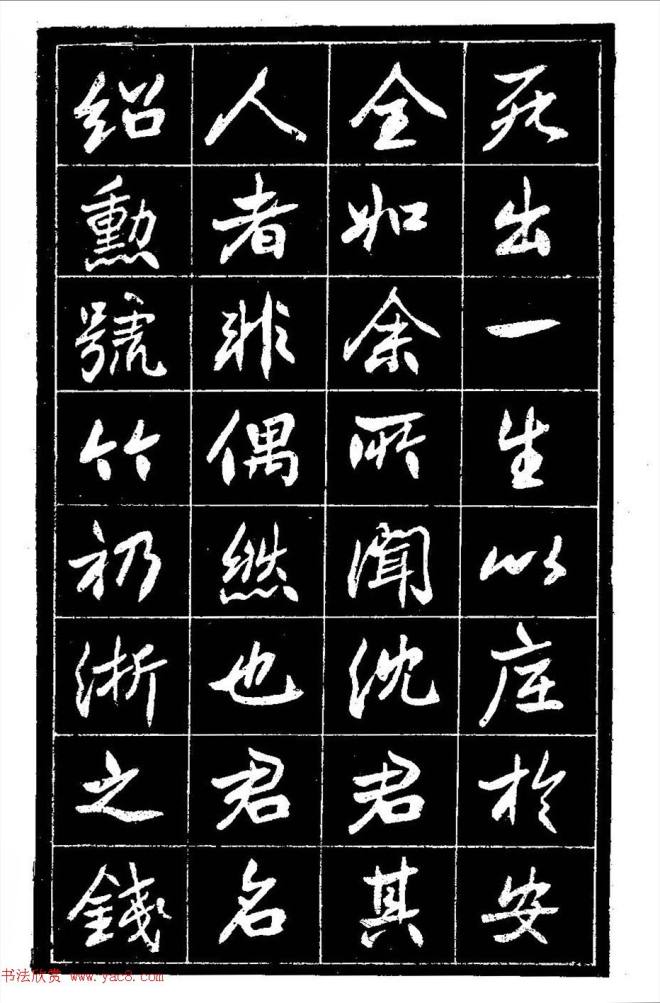 死出一生以底於安
全如余所聞沈君其
人者非偶然也君名
紹勳號竹礽浙之錢
书法欣赏 www.yac8.com